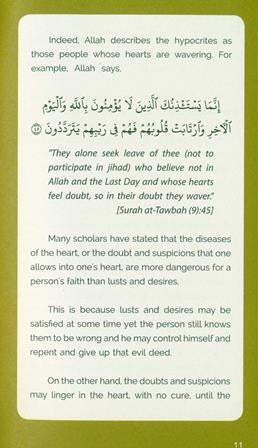 Indeed, Allah describes the hypocrites as
those people whose hearts are wavering. For
example, Allah says,
إِنَّمَا يَسْتَـْٔذِنُكَ ٱلَّذِينَ لَا يُؤْمِنُونَ بِٱللَّهِ وَٱلْيَوْمِ
ٱلْـَٔاخِرِ وَٱرْتَابَتْ قُلُوبُهُمْ فَهُمْ فِى رَيْبِهِمْ يَتَرَدَّدُونَ ٤٥
"They alone seek leave of thee (not to
participate in jihad) who believe not in
Allah and the Last Day and whose hearts
feel doubt, so in their doubt they waver."
[Surah at-Tawbah (9):45]
Many scholars have stated that the diseases
of the heart, or the doubt and suspicions that one
allows into one's heart, are more dangerous for a
person's faith than lusts and desires.
This is because lusts and desires may be
satisfied at some time yet the person still knows
them to be wrong and he may control himself and
repent and give up that evil deed.
On the other hand, the doubts and suspicions
may linger in the heart, with no cure, until the
11